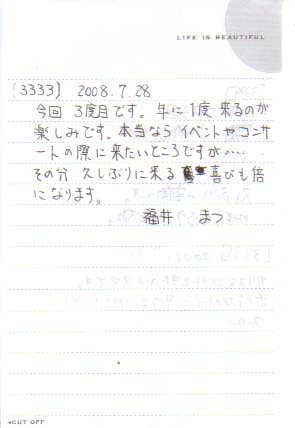 LIFE IS BEAUTIFUL
[3333] 2008.7.28
今回 3度目です。年に1度 来るのが
楽しみです。本当なら イベントや コンサ
ートの際に来たいところですが....
その分 久しぶりに来る 喜びも倍
になります。
福井 まつ
◂CUT OFF